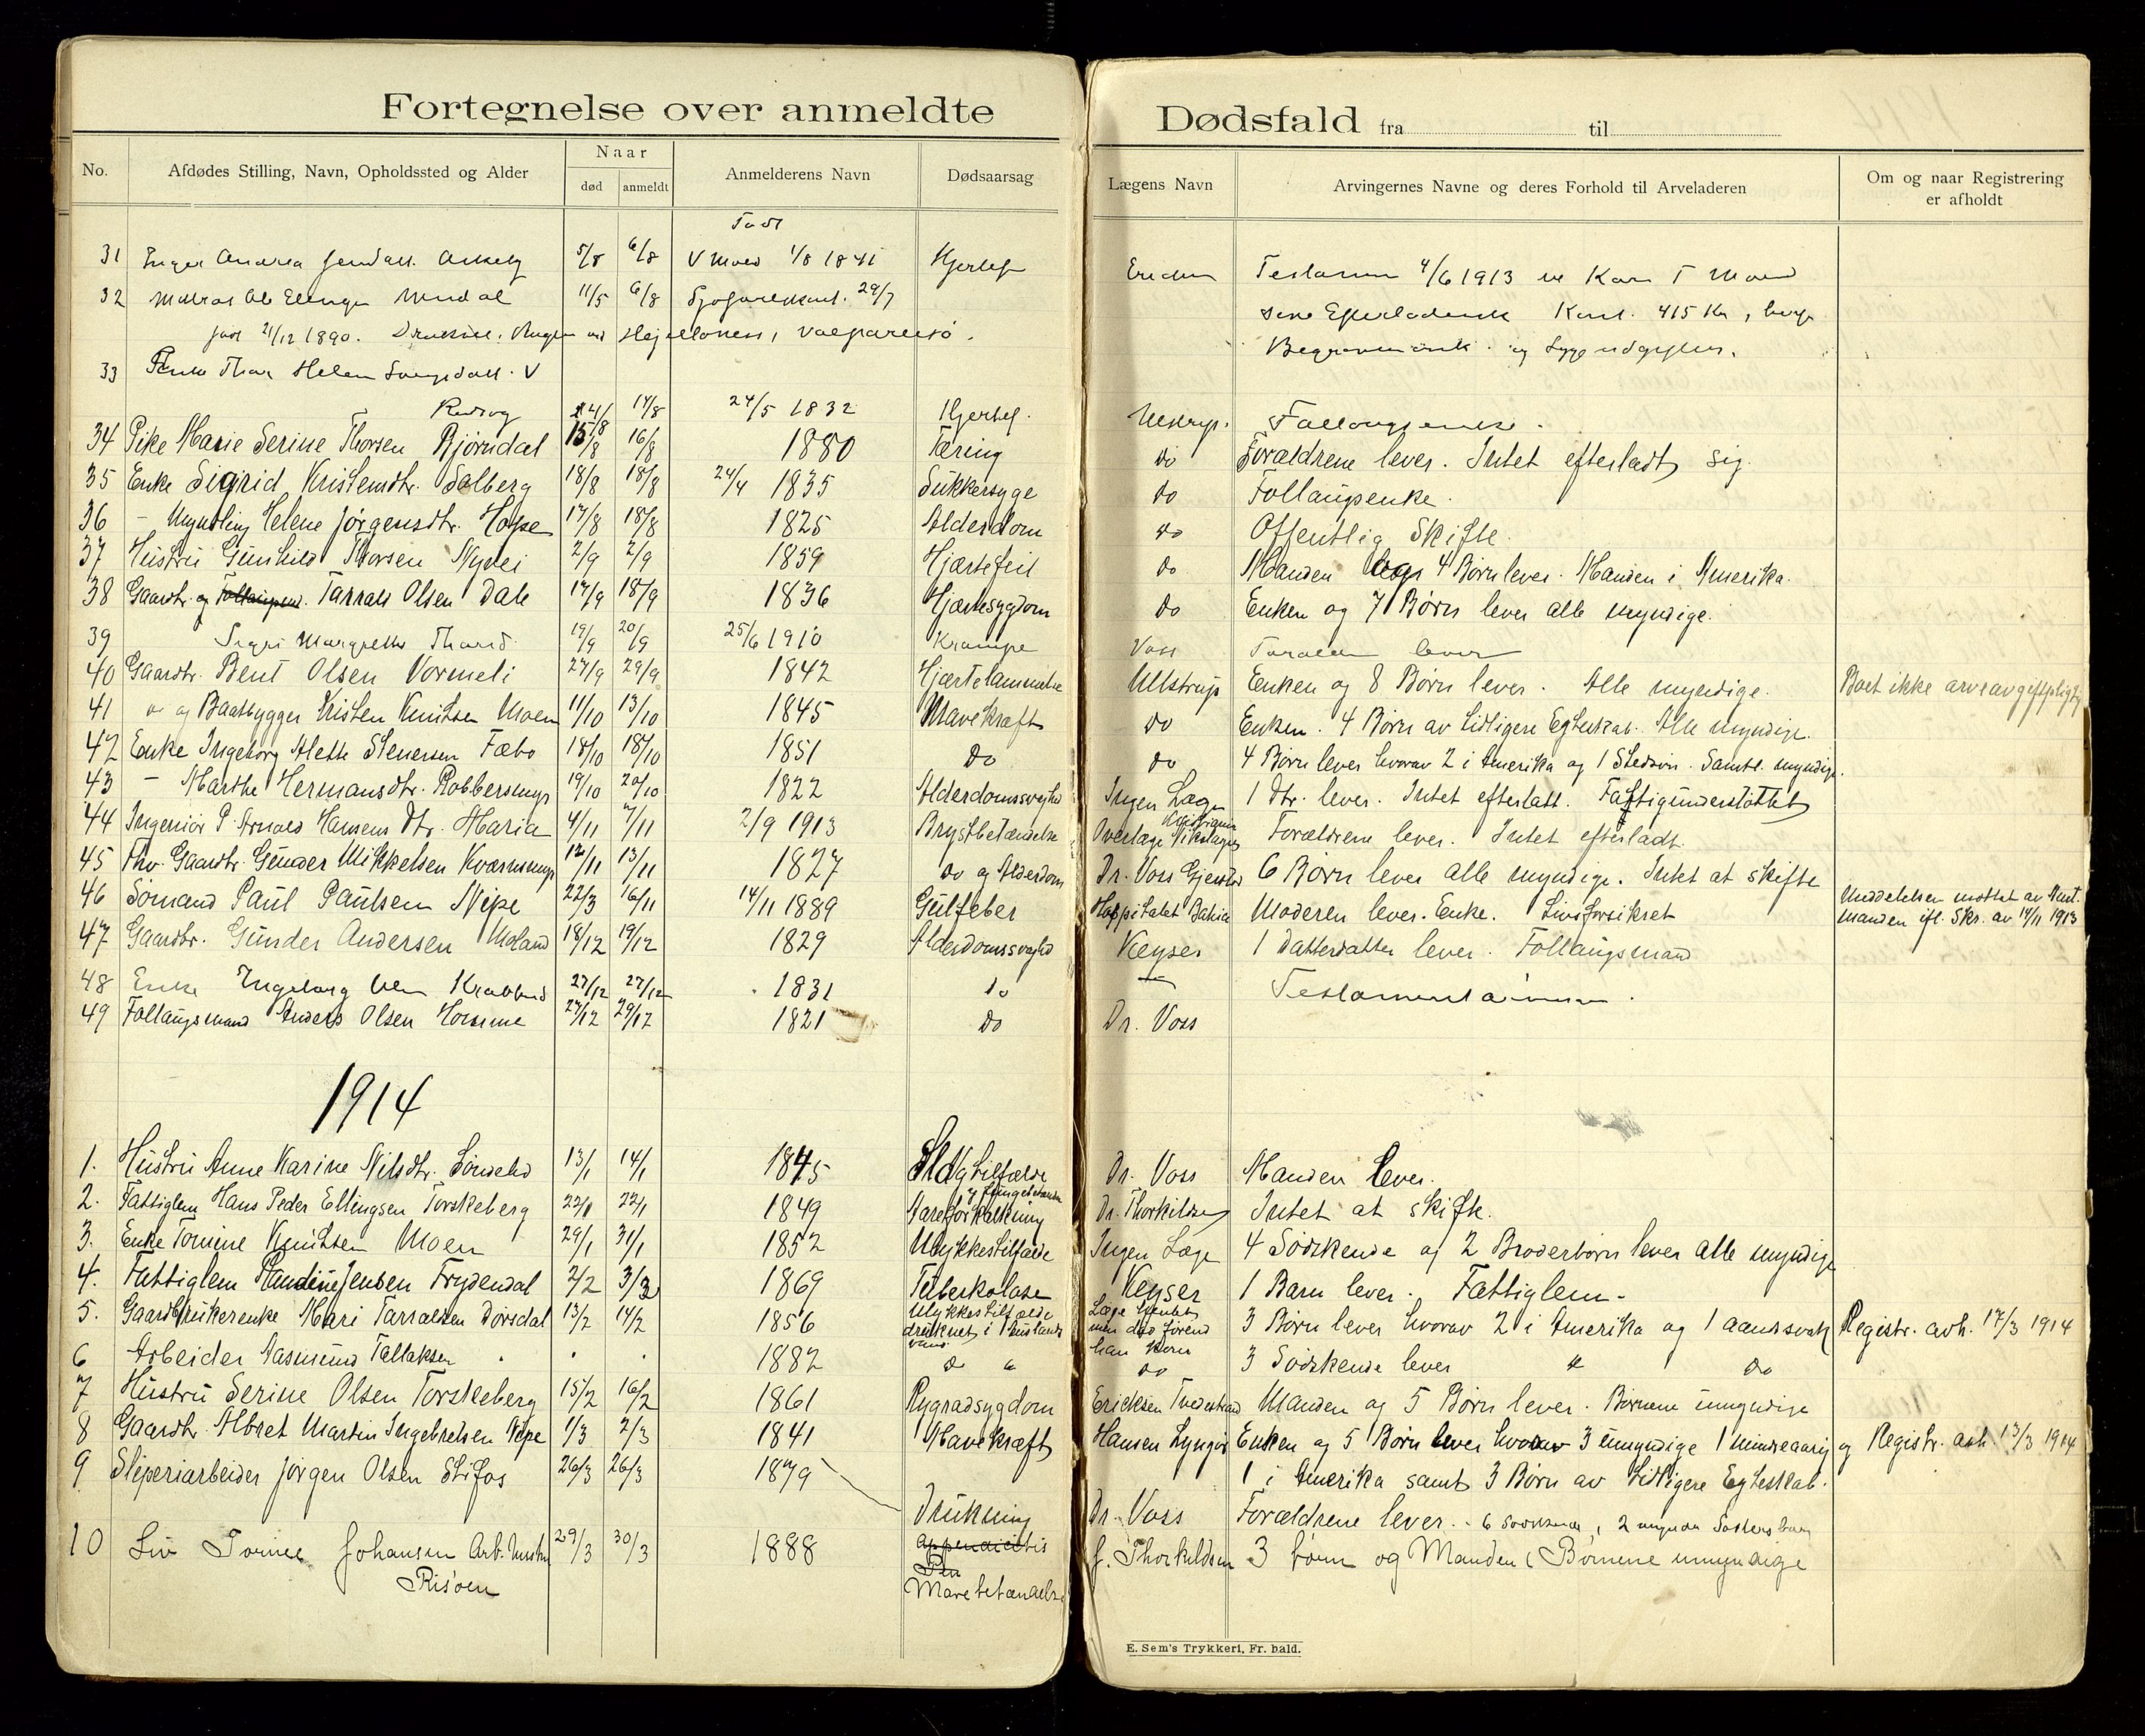 Fortegnelse over anmeldte Dødsfald fra til
No. Afdødes Stilling, Navn, Opholdssted og Alder Naar død anmeldt Anmelderens Navn Dødsaarsag Lægens Navn Arvingernes Navne og deres Forhold til Arveladeren Om og naar Registrering er afholdt
Født
31 Andrea 5/8 6/8 1/8 1841 4/6 1913
32 11/5 6/8 29/7 415 Kr
født 21/12 1890. Valpareiso.
33 Helene
14/8 24/5 1832 Hjertef.
34 Pike Marie Serine Thorsen Bjørndal 15/8 16/8 1880 Tæring do Forældrene lever. Intet efterladt sig.
35 Enke Sigrid Kristensdtr. Solberg 18/8 18/8 24/4 1835 Sukkersyge do Follaugsenke.
36 - Myndling Helene Jørgensdtr. Hope 17/8 18/8 1825 Alderdom do Offentlig Skifte.
37 Hustru Gunhild Thorsen Nyvei 2/9 2/9 1859 Hjærtefeil do Manden 4 Børn lever. Manden i Amerika.
38 Gaardbr. og Follaugsmd. Tarrald Olsen Dale 17/9 18/9 1836 Hjærtesygdom do Enken og 7 Børn lever alle myndige.
39 Margrethe 19/9 20/9 25/6 1910 Krampe Voss lever
40 Gaardbr. Bent Olsen Vormeli 27/9 29/9 1842 Hjærtelammelse Ullstrup Enken og 8 Børn lever. Alle myndige. Boet ikke arveavgiftspligtig
41 do og Baatbygger Kristen Knutsen Moen 11/10 13/10 1845 Mavekræft do Enken. 4 Børn av tidligere Egteskab. Alle myndige.
42 Enke Ingeborg Alette Stenersen Fæbo 18/10 18/10 1851 do do 4 Børn lever hvorav 2 i Amerika og 1 Stedsøn. Samtl. myndige.
43 - Marthe Hermansdtr. Robbersmyr 19/10 20/10 1822 Alderdomssvaghed Ingen Læge 1 Dtr. lever. Intet efterlatt. Fattigunderstøttet
44 Ingeniør P. Arnold Hansens Dtr. Maria 4/11 7/11 2/9 1913 Brystbetændelse Overlæge Forældrene lever. Intet efterladt.
45 Fhv. Gaardbr. Gunder Mikkelsen Kværnmyr 12/11 13/11 1827 do og Alderdom Dr. Voss Gjerstad 6 Børn lever alle myndige. Intet at skifte
46 Sømand Paul Paulsen Nipe 22/3 16/11 14/11 1889 Gulfeber Hospitalet Bahia Moderen lever. Enke. Livsforsikret Meddelelsen mottat av Amtmanden ifl. Skr. av 14/11 1913
47 Gaardbr. Gunder Andersen Moland 18/12 19/12 1829 Alderdomssvaghed Keyser 1 Datterdatter lever. Follaugsmand
48 Enke Ingeborg 27/12 27/12 1831 do -
49 Follaugsmand Anders Olsen Homme 27/12 29/12 1821 do Dr. Voss
1914
1. Hustru Anne Karine Nilsdtr. Søndeled 13/1 14/1 1845 Slagtilfælde Dr. Voss Manden lever.
2. Fattiglem Hans Peder Ellingsen Torskeberg 22/1 22/1 1849 Aareforkalkning Dr. Thorkildsen Intet at skifte.
3. Enke Tomine Knutsen Moen 29/1 31/1 1852 Ulykkestilfælde Ingen Læge 4 Sødskende og 2 Broderbørn lever alle myndige
4. Fattiglem Jensen Frydendal 2/2 3/2 1869 Tuberkolose Keyser 1 Barn lever. Fattiglem.
5. Gaardbrukerenke Mari Tarraldsen Dørsdal 13/2 14/2 1856 Ulykkestilfælde druknet i Læge hentet men død førend han kom 3 Børn lever hvorav 2 i Amerika og 1 aandssvak Registr. avh. 17/3 1914
6 Arbeider Aasmund Tallaksen . . . 1882 do do 3 Sødskende lever do
7 Hustru Serine Olsen Torskeberg 15/2 16/2 1861 Rygradsygdom Ericksen Tvedestrand Manden og 5 Børn lever. Børnene umyndige
8 Gaardbr. Albret Martin Ingebretsen Nipe 1/3 2/3 1841 Mavekræft Hansen Lyngør Enken og 5 Børn lever hvorav 3 umyndige 1 mindreaarig og Registr. avh. 13/3 1914
9 Sliperiarbeider Jørgen Olsen Stifos 26/3 26/3 1879 1 i Amerika samt 3 Børn av tidligere Egteskab.
Drukning Dr. Voss Forældrene lever. 6 Sødskende, 2
10 Johansen Arb. hustru 29/3 30/3 1888 appendicitis J. Thorkildsen 3 børn og Manden (Børnene umyndige
Risøen Mavebetændelse
E. Sem's Trykkeri, Fr. hald.